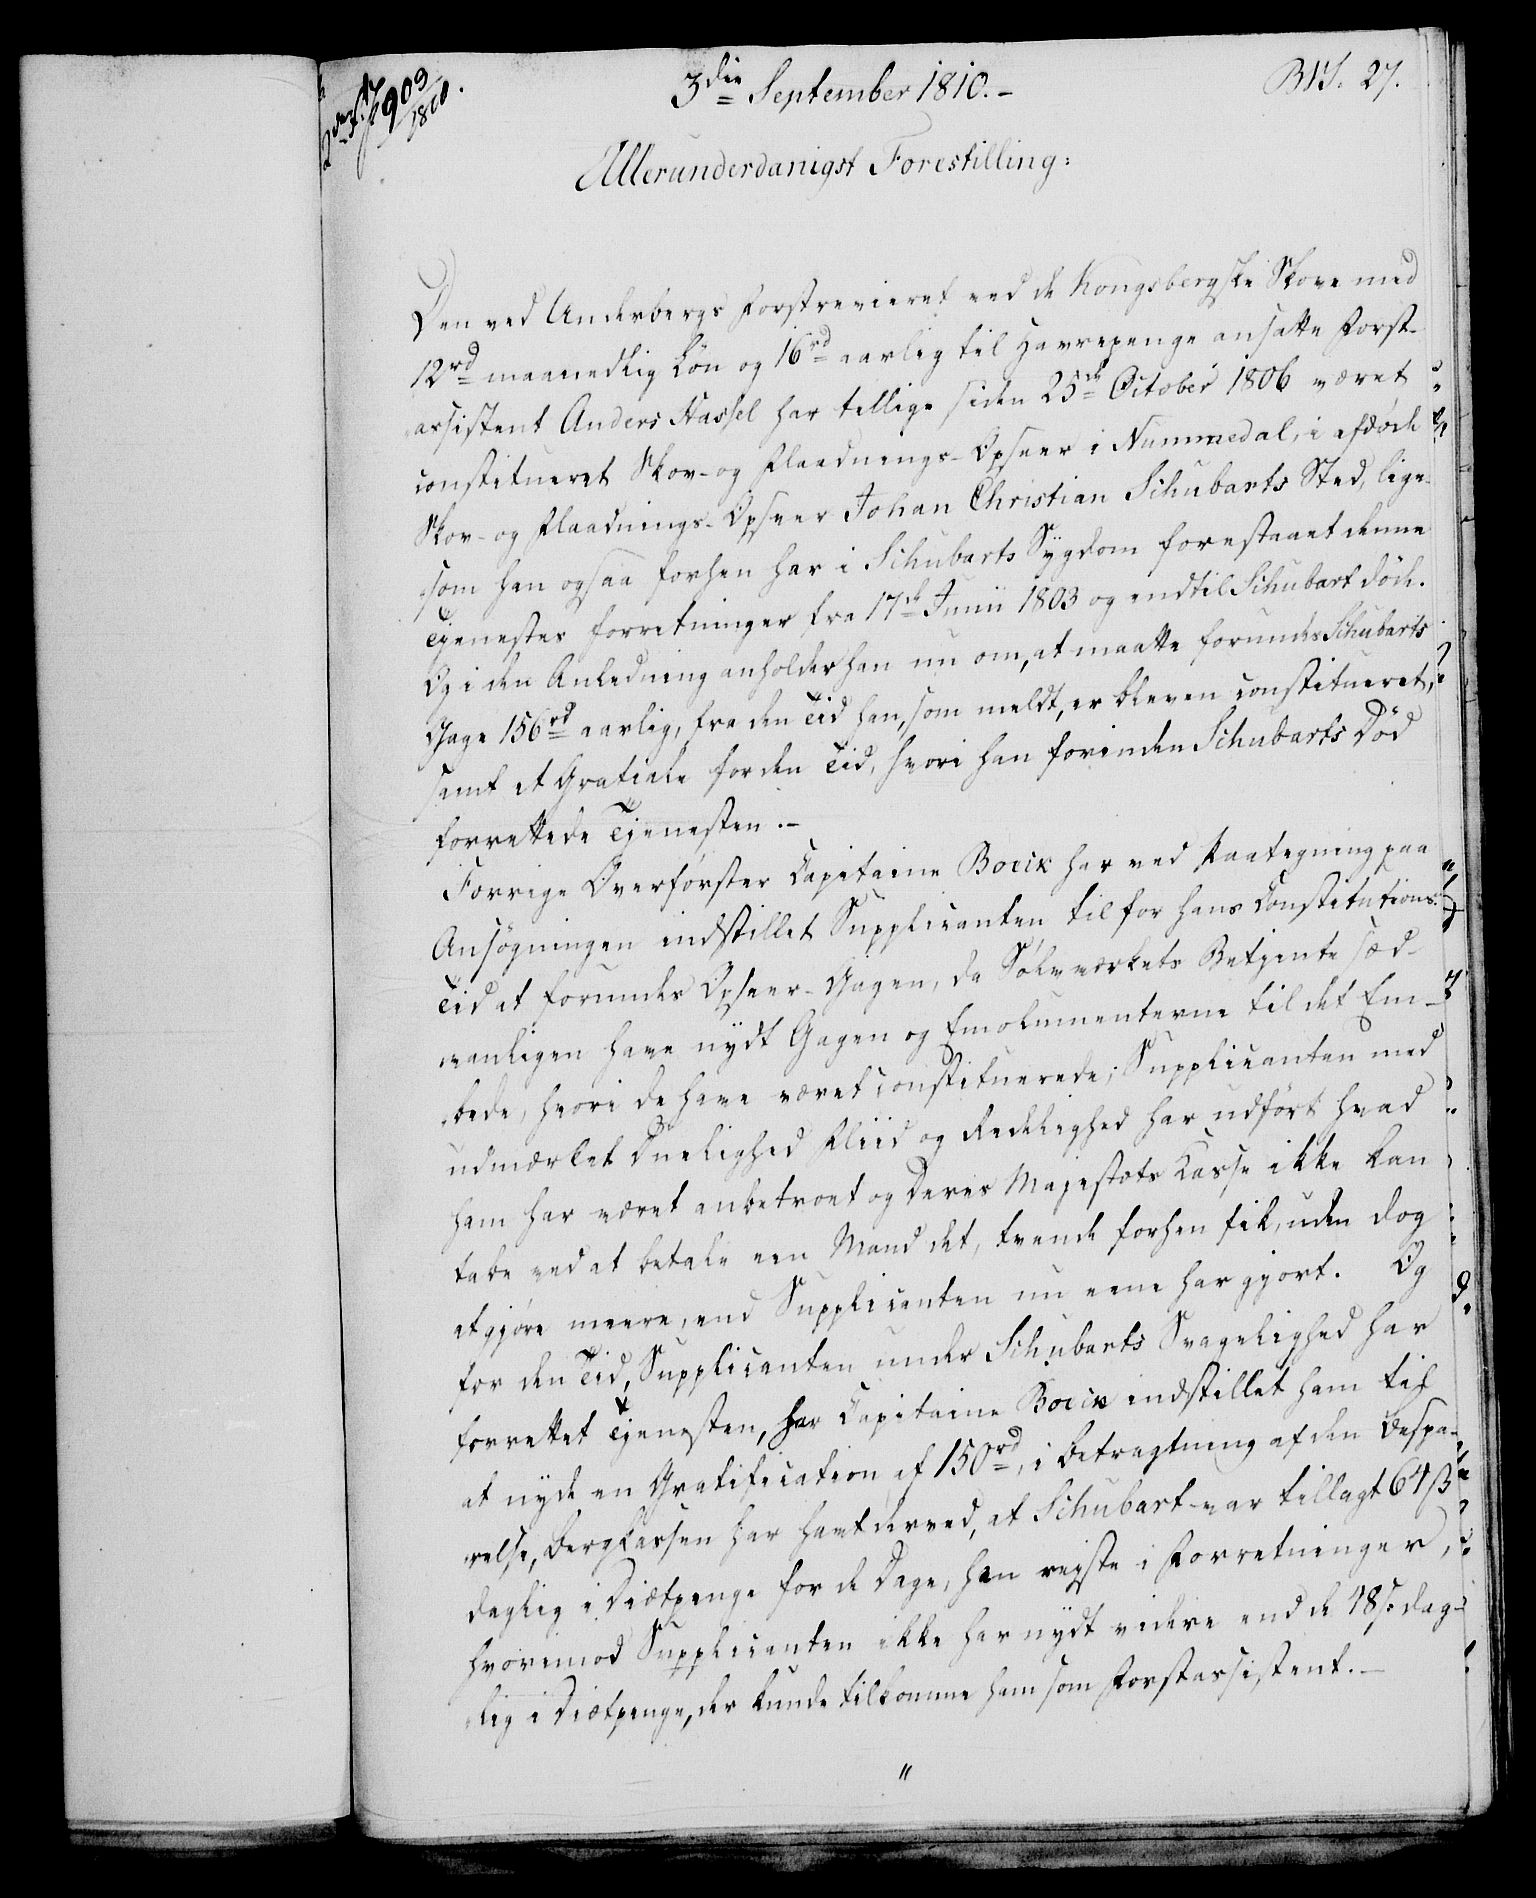 903
1810.
3die September 1810.-
27.
Allerunderdanigst Forestilling:
Den ved Underbergs Forstrevieret ved de Kongsbergske Skove med
12rd maanedlig Løn og 16rd aarlig til Havrepenge ansatte Forst-
assistent Anders Hassel har tillige siden 25de October 1806 været
constitueret Skov- og Flaadnings-Opseer i Nummedal, i afdöde
Skov- og Flaadnings-Opseer Johan Christian Schubarts Sted, lige-
som han ogsaa forhen har i Schubarts Sygdom forestaaet denne
Tjenestes forretninger fra 17de Junii 1803 og indtil Schubart döde.
Og i den Anledning anholder han nu om, at maatte forundes Schubarts
Gage 156rd aarlig, fra den Tid han, som meldt, er bleven constitueret,
samt et Gratiale for den Tid, hvori han forinden Schubarts Død
forrettede Tjenesten.-
Forrige Overförster Capitaine Boeck har ved Paategning paa
Ansögningen indstillet Supplicanten til for hans Constitutions-
Tid at forundes Opseer-Gagen, da Sölvværkets Betjente sæd-
vanligen have nydt Gagen og Emolumenterne til det Em-
bede, hvori de have været constituerede; Supplicanten med
udmærket Duelighed Fliid og Redelighed har udfört hvad
ham har været anbetroet og Deres Majestæts Casse ikke kan
tabe ved at betale een Mand det, tvende forhen fik, uden dog
at gjöre meere, end Supplicanten nu eene har gjort. Og
for den Tid, Supplicanten under Schubarts Svagelighed har
forrettet Tjenesten, har Capitaine Boeck indstillet ham til
at nyde en Gratification af 150rd, i Betragtning af den Bespa-
relse, Bergkassen har havt derved, at Schubart var tillagt 64ß
daglig i Diætpenge for de Dage, han rejste i Forretninger,
hvorimod Supplicanten ikke har nydt videre end de 48s. dag-
lig i Diætpenge, der kunde tilkomme ham som Forstassistent.-
"